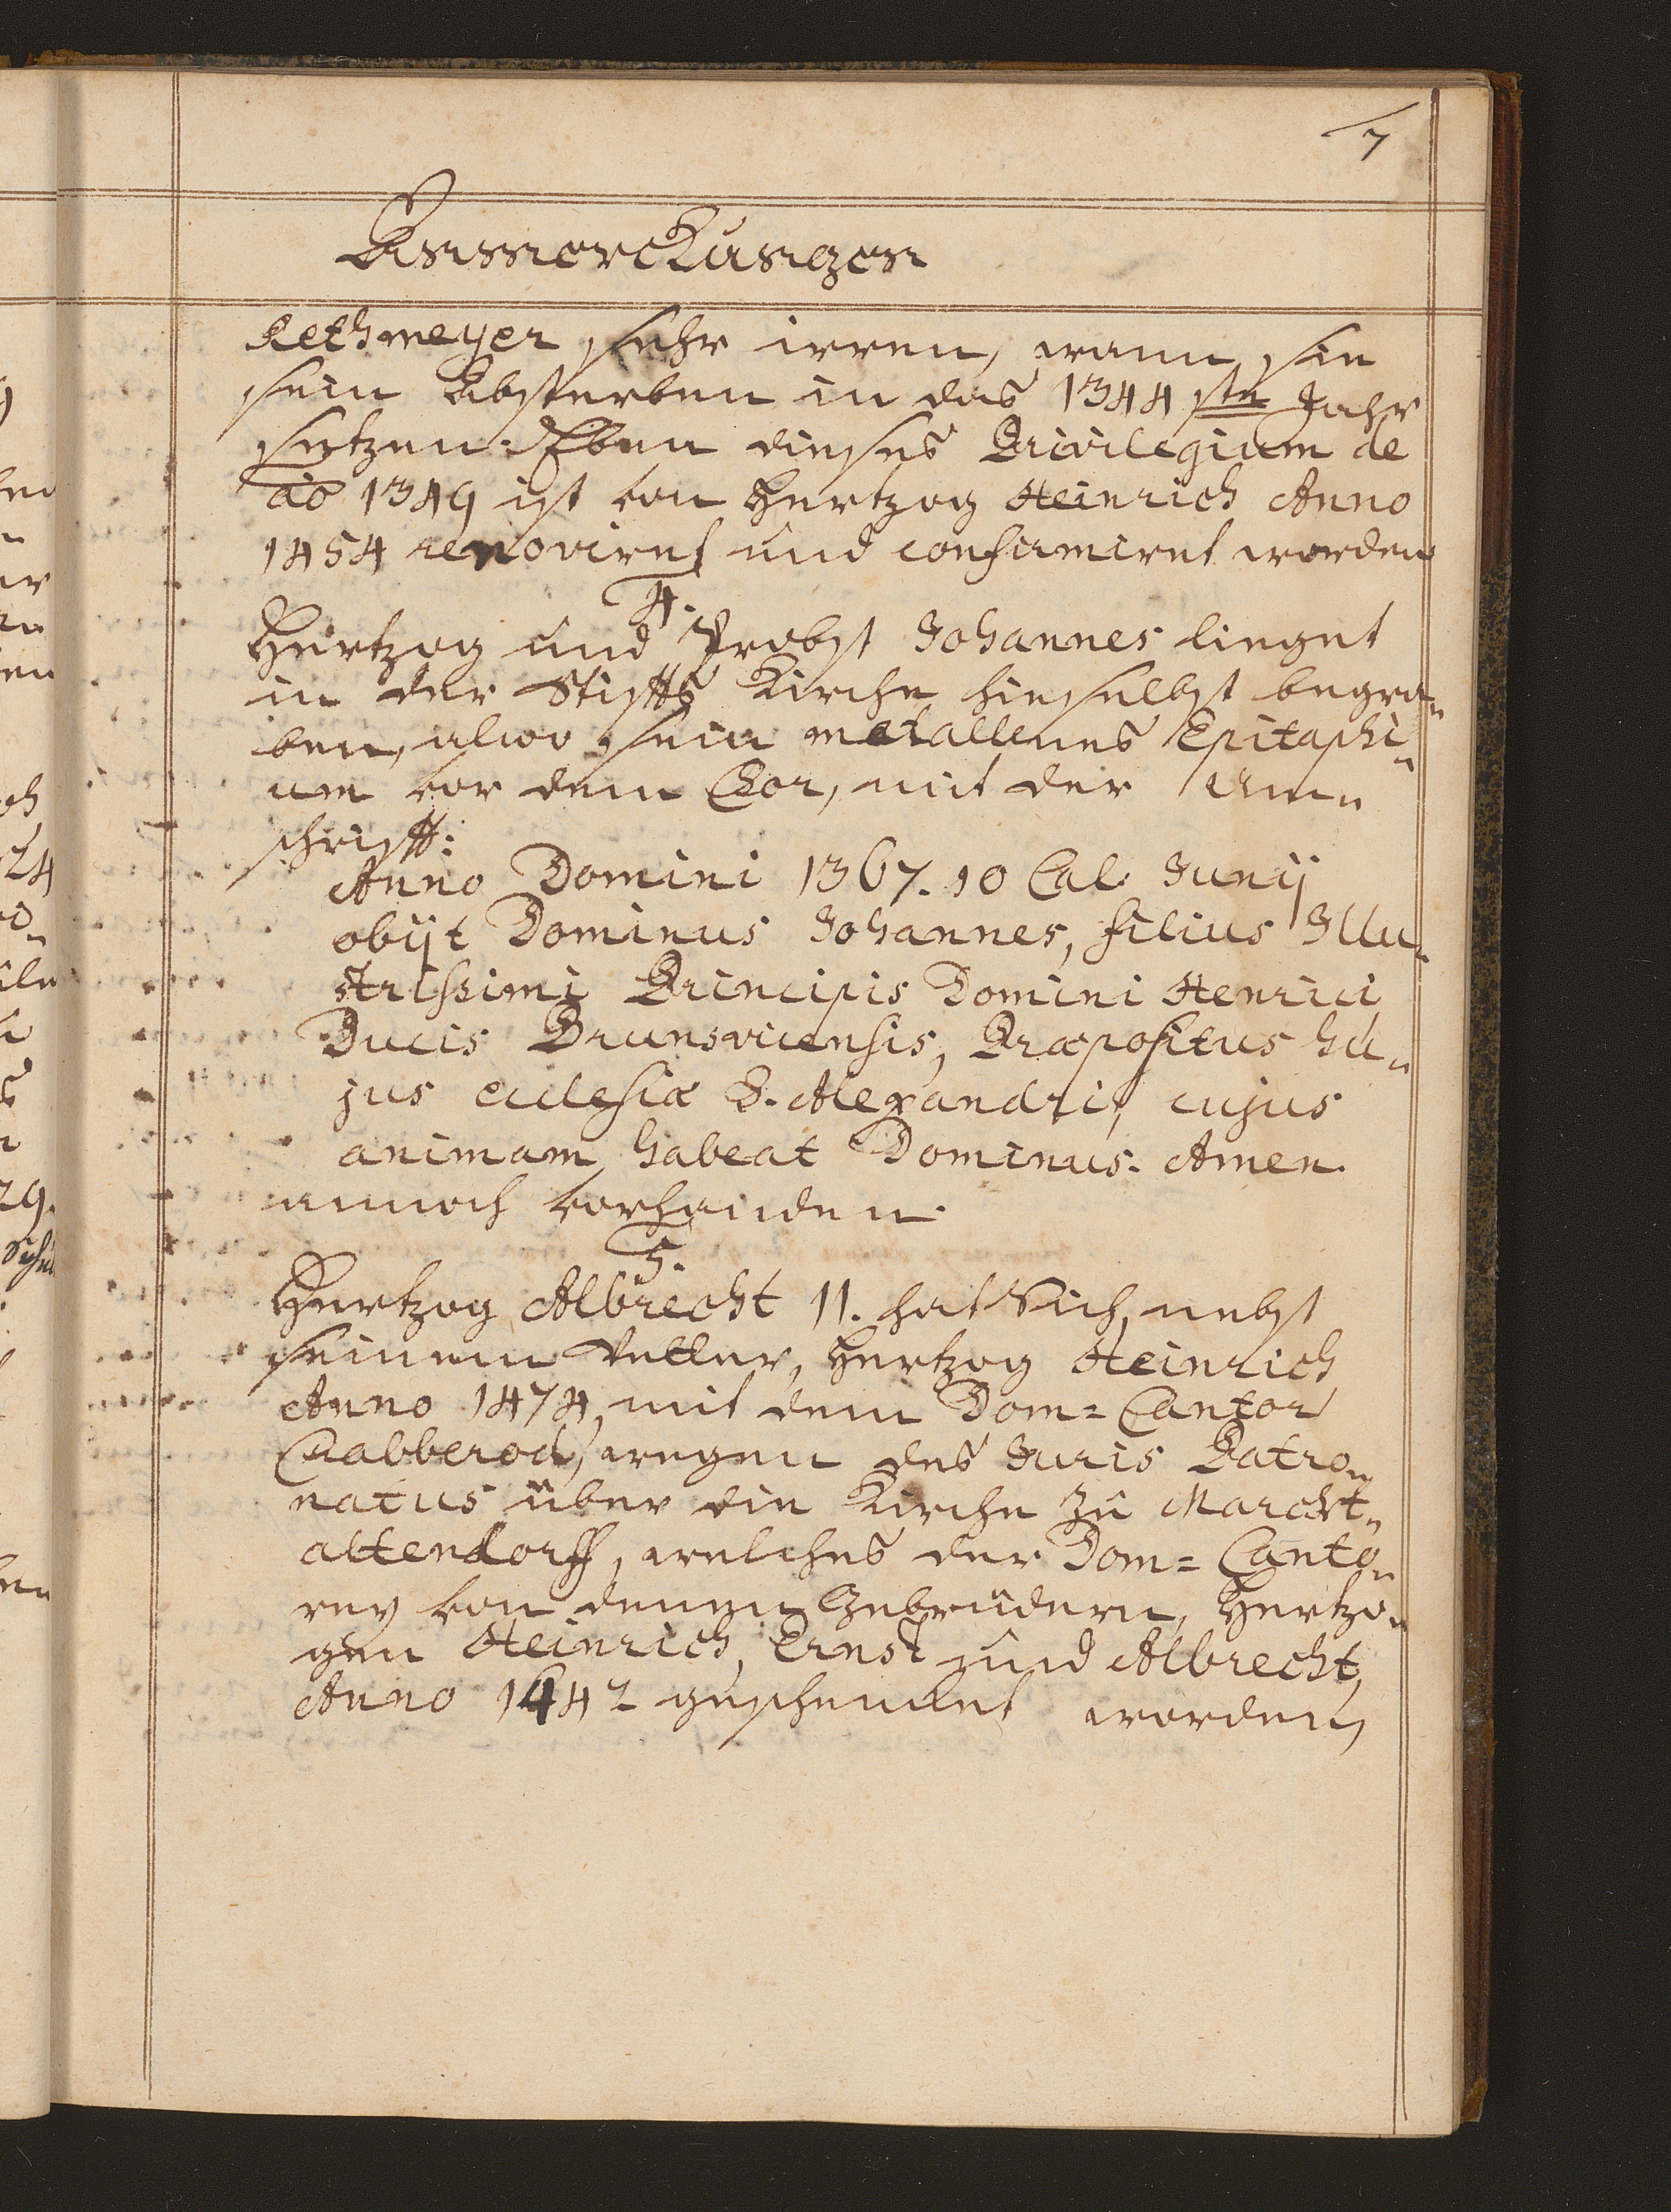 7
Anmerckungen
Rethmeyer sehr irren, wann sie
sein Absterben in das 1344 ste Jahr
setzen. Eben dieses Privilegium de
ao 1349 ist von Hertzog Heinrich Anno
1454 renoviret und confirmiret worden
4.
Hertzog und Probst Johannes lieget
in der Stiffts Kirche hieselbst begra„
ben, alwo sein metallenes Epitaphi„
um vor dem Chor, mit der Um„
schrifft:
Anno Domini 1367. 10 Cal. Junij
obijt Dominus Johannes, filius Illu„
strissimi Principis Domini Henrici
Ducis Brunsvicensis, Præpositus hu„
jus ecclesiæ S. Alexandri, cujus
animam habeat Dominus. Amen.
annoch vorhanden.
5.
Hertzog Albrecht II. hat Sich, nebst
seinem Vetter, Hertzog Heinrich
Anno 1474, mit dem Dom= Cantor
Crabberod, wegen des Juris Patro„
natus über die Kirche zu Marckt„
altendorff, welches der Dom= Canto„
rey von denen Gebrüdern, Hertzo„
gen Heinrich, Ernst und Albrecht,
Anno 1442 geschencket worden,